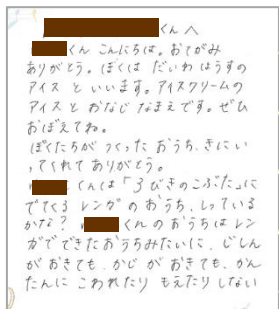 くんへ
くん こんにちは。おてがみ
ありがとう。ぼくは だいわはうすの
アイス と いいます。アイスクリームの
アイスと おなじ なまえです。ぜひ
おぼえてね。
ぼくたちが つくった おうち、きにい
ってくれて ありがとう。
くんは「3びきのこぶた」に
でてくる レンガ の おうち、しっている
かな? くんのおうちは レン
ガで できた おうちみたいに、じしん
が おきても、かじ が おきても、かん
たんに こわれたり もえたり しない